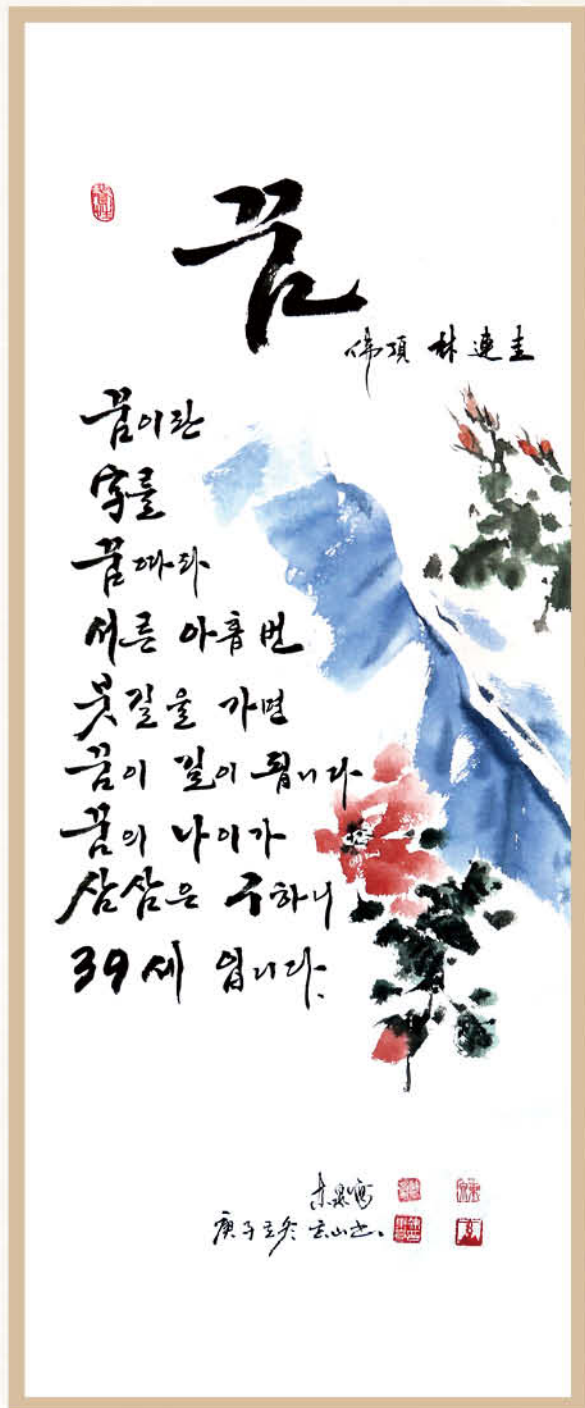 꿈
林連圭
꿈이란
字를
꿈따라
서른 아홉 번
붓길을 가면
꿈이 길이 됩니다
꿈의 나이가
삼삼은 구하니
39세 입니다.
庚子立冬 玄山书